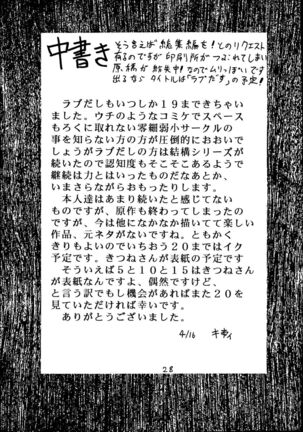 中書き
そう言えば総集編を!とのリクエスト
有るのですが印刷所がつぶれてしまい
原稿が紛失中!なのでムリっぽいです
出るなら タイトルは「ラブだす」の予定!
ラブだしもいつしか19まできちゃい
ました。ウチのようなコミケでスペース
もろくに取れない零細弱小サークルの
事を知らない方の方が圧倒的におおいで
しょうがラブだしの方は結構シリーズが
続いたので認知度もそこそこあるようで
継続は力とはいったものだなあとか、
いまさらながらおもったりします。
本人達はあまり続いたと感じてない
ものですが、原作も終わってしまったの
ですが、今は他になかなか描いてて楽しい
作品、元ネタがないですね。ともかく
きりもよいのでいちおう20まではイク
予定です。きつねさんが表紙の予定です
そういえば5と10と15はきつねさん
が表紙なんですよ、偶然ですけど、
と言う訳でもし機会があればまた20を
見ていただければ幸いです。
ありがとうございました。
4/16
28